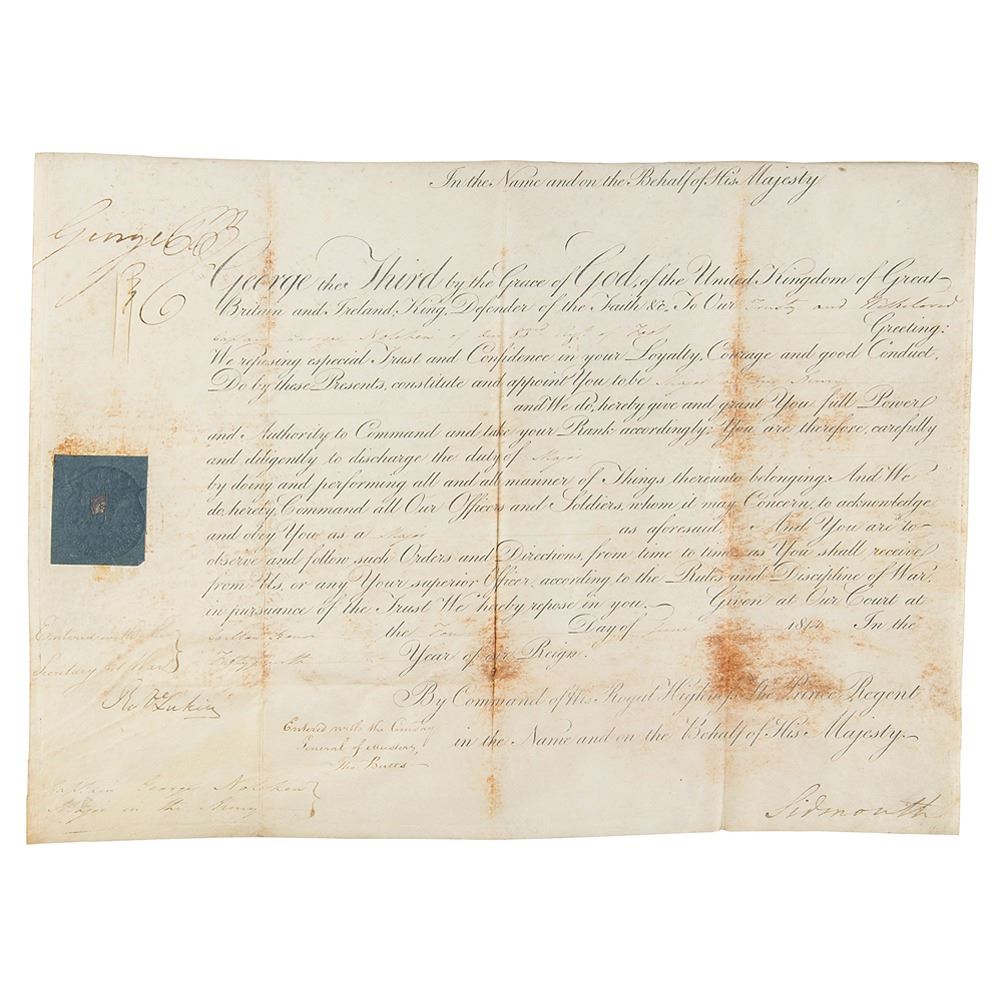 In the Name and on the Behalf of His Majesty
George P R
George the Third by the Grace of God, of the United Kingdom of Great
Britain and Ireland, King, Defender of the Faith &c, To Our Trusty and Welbeloved
Captain George Nolchen of Our 83rd Regt of Foot Greeting:
We reposing especial Trust and Confidence in your Loyalty, Courage and good Conduct,
Do by these Presents, constitute and appoint You to be Major in the Army
and We do, hereby give and grant You full Power
and Authority to Command and take your Rank accordingly: You are therefore, carefully
and diligently to discharge the duty of Major
by doing and performing all and all manner of Things thereunto belonging: And We
do, hereby, Command all Our Officers and Soldiers, whom it may Concern, to acknowledge
and obey You as a Major as aforesaid: And You are to
observe and follow such Orders and Directions, from time to time, as You shall receive
from Us, or any Your superior Officer, according to the Rules and Discipline of War,
in pursuance of the Trust We hereby repose in you. Given at Our Court at
Carlton House the Day of June 1814 In the
Year of our Reign.
Entered with the
Secretary at War
By Command of His Royal Highness The Prince Regent
in the Name and on the Behalf of His Majesty.
Lukin
Entered with the Comsary
General of Musters
Tho. Butts
Captain George Nolchen
Major in the Army
Sidmouth